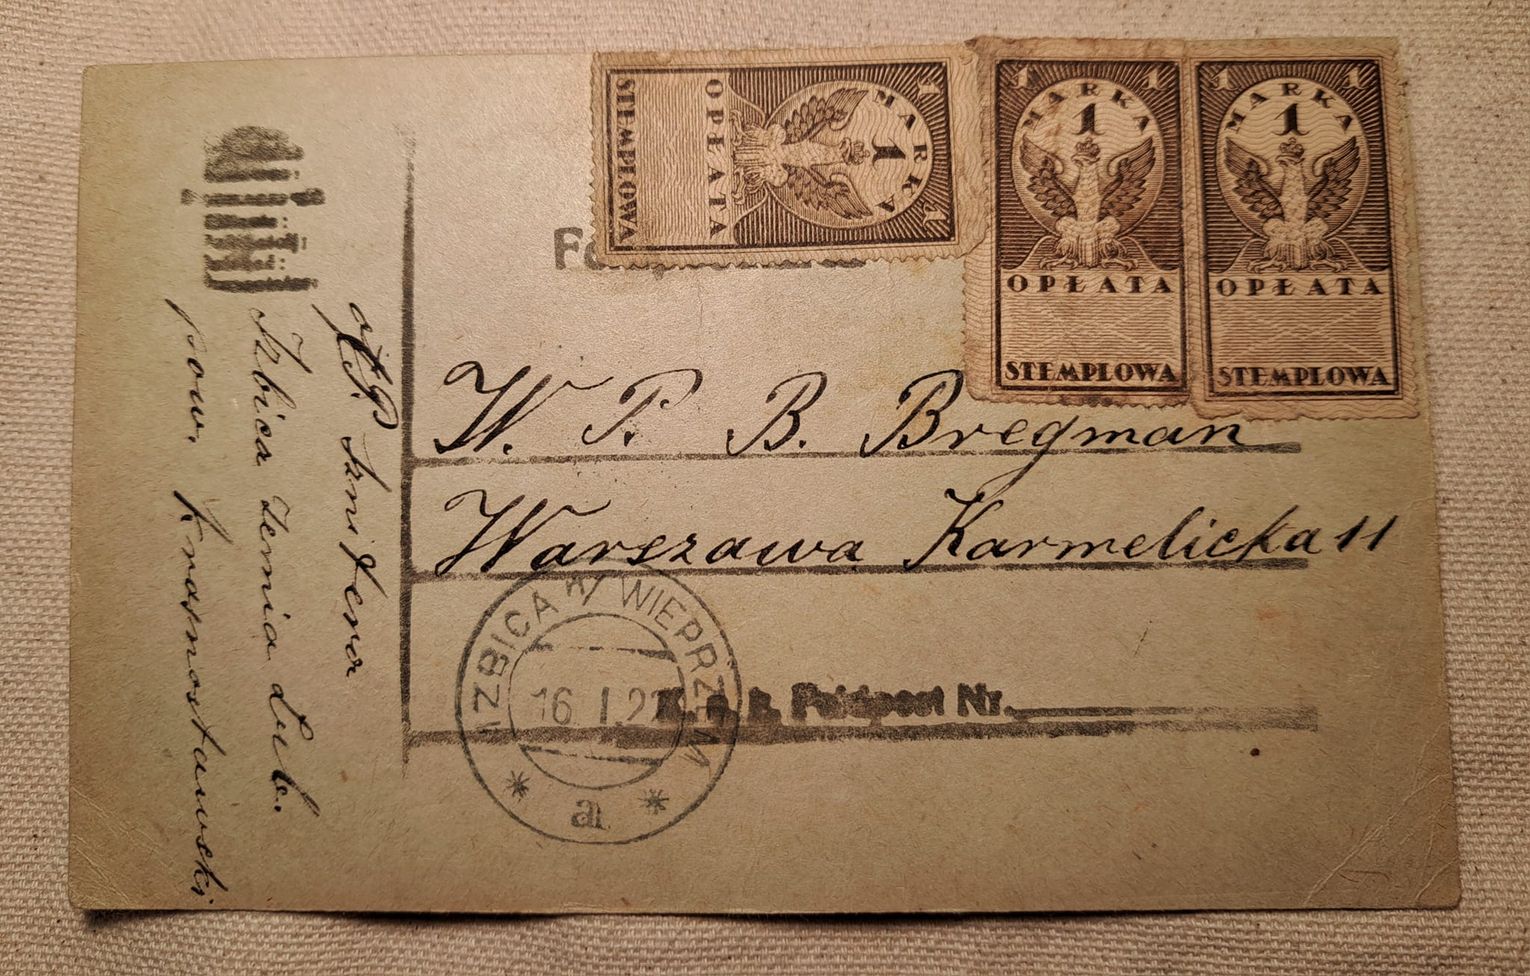 1 MARKA 1
1
OPŁATA
STEMPLOWA
1 MARKA 1
1
OPŁATA
STEMPLOWA
1 MARKA 1
1
OPŁATA
STEMPLOWA
W. P. B. Bregman
Warszawa Karmelicka 11
IZBICA n/ WIEPRZEM
16 I.22
a
K. u. k. Feldpost Nr.
Sznifera
Izbica ziemia Lub.
pow. Krasnostawski